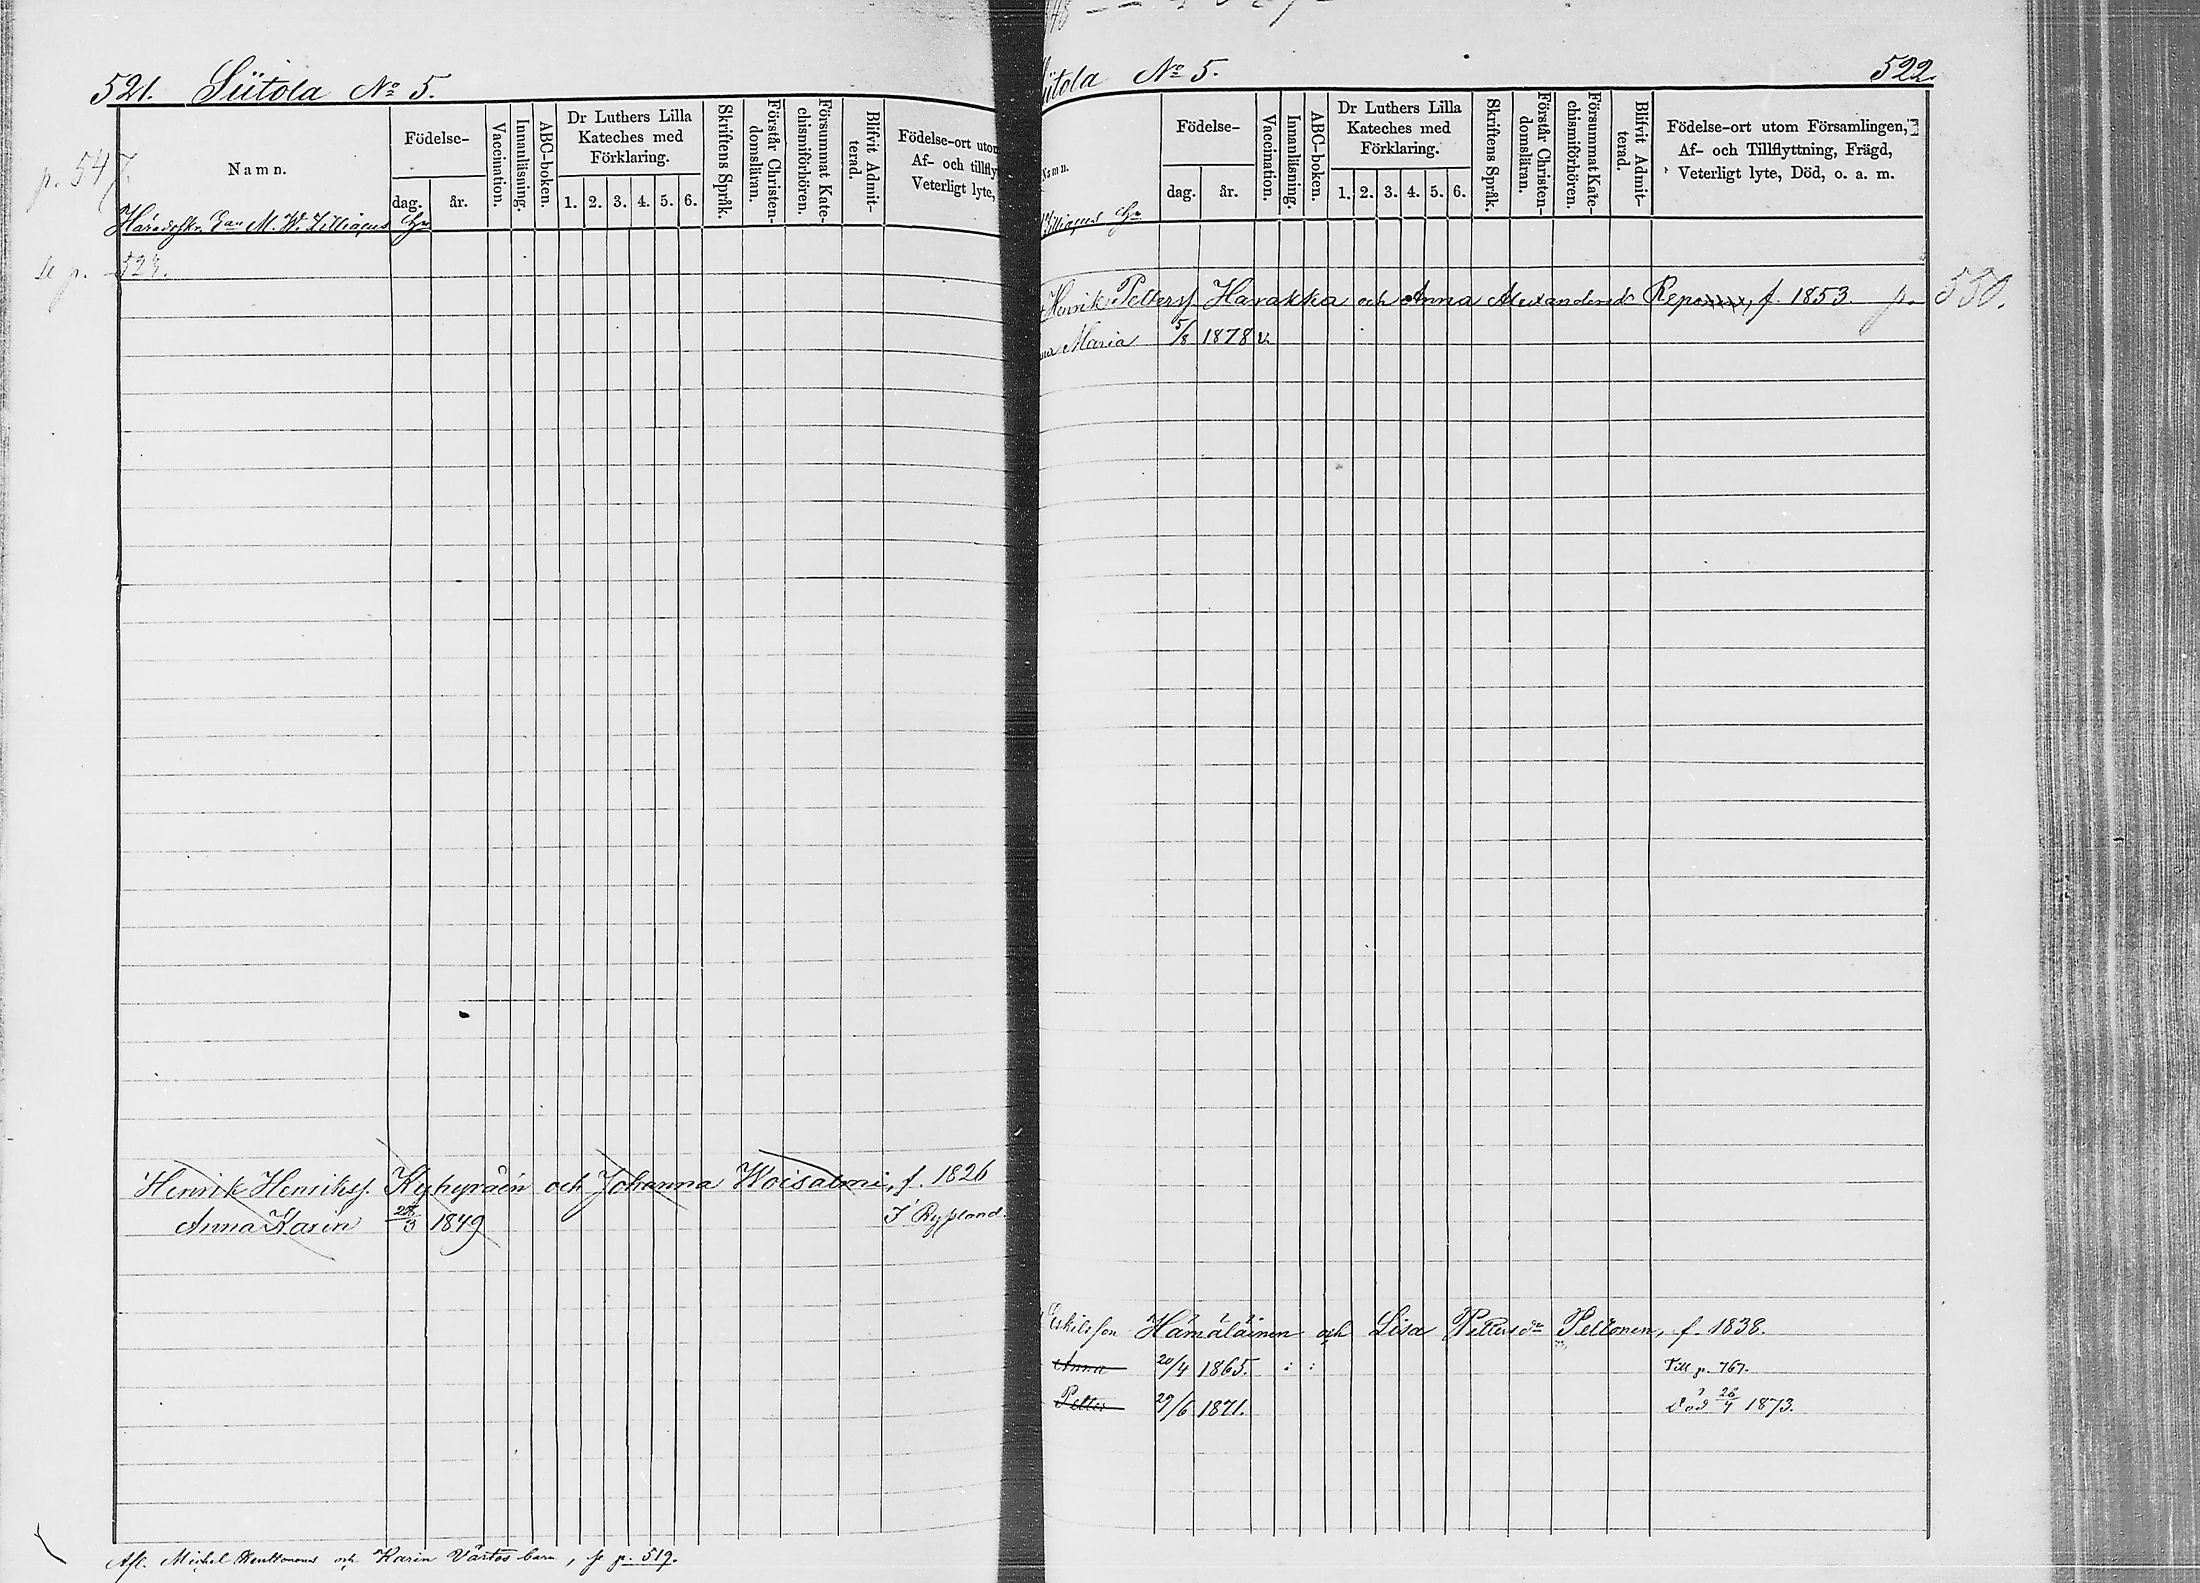 521. Siitola No 5.
p. 547.
Namn.
Födelse-
dag.
år.
Vaccination.
Innanläsning.
ABC-boken.
Dr Luthers Lilla
Kateches med
Förklaring.
1. 2. 3. 4. 5. 6.
Skriftens Språk.
Förstår Christen-
domsläran.
Försummat Kate-
chismiförhören.
Blifvit Admit-
terad.
Födelse-ort uto
Af- och tillfly
Veterligt lyte,
M. W. Lilliaçus
se p. 524.
Henrik Henrikss. Kyhyräin och Johanna Woisalmi, f. 1826
Anna Karin 28/3 1849 I Ryssland.
Afl. Michel och Karin Värtös barn, se p. 519.
iitola No 5. 522.
Namn.
Födelse-
dag.
år.
Vaccination.
Innanläsning.
ABC-boken.
Dr Luthers Lilla
Kateches med
Förklaring.
1. 2. 3. 4. 5. 6.
Skriftens Språk.
Förstår Christen-
domsläran.
Försummat Kate-
chismiförhören.
Blifvit Admit-
terad.
Födelse-ort utom Församlingen,
Af- och Tillflyttning, Frägd,
Veterligt lyte, Död, o. a. m.
Lilliaçus
Henrik Petterss. Harakka och Anna Alexandersdr Reponen, f. 1853. p. 550.
Maria 5/8 1878 v.
Eskilsson Hämäläinen och Lisa Pettersdr Peltonen, f. 1838.
Anna 20/4 1865. Till p. 767.
Petter 29/6 1871. Död 26/4 1873.